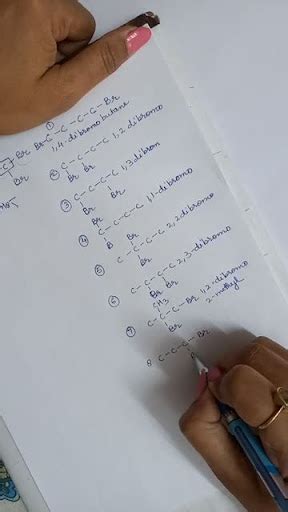 ①
Br-C-C-C-C-Br
1,4-dibromo butane
C Br
Br
② C-C-C-C 1,2 dibromo
Br Br
③ C-C-C-C 1,3 dibrom
Br Br
Br
④ C-C-C-C 1,1-dibromo
B Br
⑤ C-C-C-C 2,2 dibromo
Br
⑥ C-C-C-C 2,3-dibromo
Br Br
CH3
⑦ C-C-C-Br 1,2-dibromo
Br 2-methyl
8 C-C-C-Br